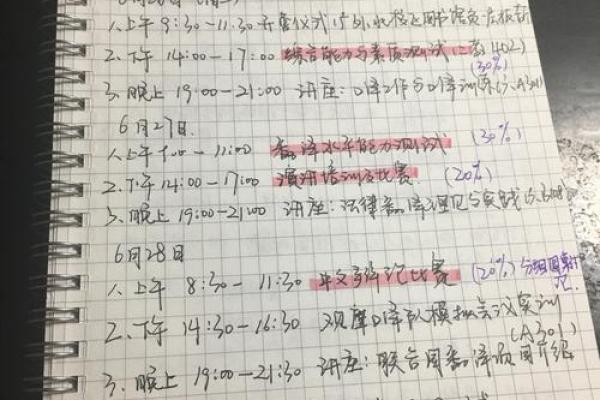 1、上午 9:30-11:30 开营仪式
2、下午 14:00-17:00 综合能力与素质测试(二教402)
(30%)
3、晚上 19:00-21:00 讲座:口译工作与口译训练(六A301)
6月27日
1、上午 9:00-11:00 翻译水平能力测试 (30%)
2、下午 14:00-17:00 演讲培训及比赛 (20%)
3、晚上 19:00-21:00 讲座:法律翻译理论与实践
6月28日
1、上午 8:30-11:30 中文辩论比赛 (20%)
2、下午 14:30-16:30 观摩口译队模拟会议实训
(A301)
3、晚上 19:00-21:30 讲座:联合国翻译项目介绍